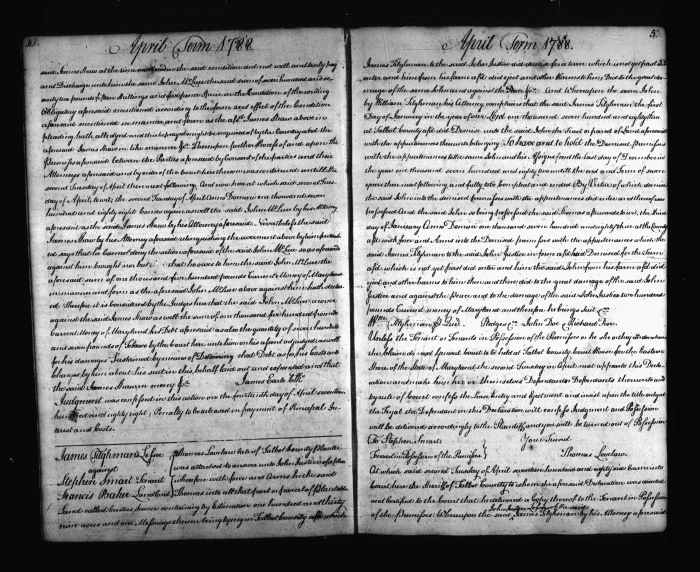 April Term 1788.
said James Shaw at the time and under the said condition did not well and truly pay
and Discharge unto him the same John McLure the said sum of seven hundred and se
venty two pounds fifteen shillings and five pence
Obligatory aforesaid mentioned according to the form and effect of the Condition
aforesaid mentioned in manner and form as the afsd James Shaw above in
pleading hath alledged and this he prays may be enquired of by the Country and the
aforesaid James Shaw in like manner &c. Thereupon further Process of and upon the
Premises aforesaid between the Parties aforesaid by Consent of the parties and their
Attorneys aforesaid and by order of the Court here thereon was continued untill the
second Tuesday of April then next following. And now here at which said second Tues
day of April, to wit, the second Tuesday of April Anno Domini one thousand seven
hundred and eighty eight Comes again as well the said John McLure by his Attorney
aforesaid as the said James Shaw by his Attorney aforesaid. Nevertheless the said
James Shaw by his Attorney aforesaid relinquishing the averment above by him pleaded
says that he Cannot deny the action aforesaid of the said John McLure so as aforesaid
against him brought nor but that he owes to him the said John McLure the
aforesaid sum of one thousand five hundred pounds Current Money of Maryland
in manner and form as the aforesaid John McLure above against him hath decla
red. Therefore it is considered by the Judges here that the said John McLure recover
against the said James Shaw as well the sum of one thousand five hundred pounds
Current Money of Maryland his Debt aforesaid as also the quantity of seven hundred
and seven pounds of Tobacco by the Court here unto him on his assent adjudged as well
for his damages Sustained by means of Detaining that Debt as for his Costs and
Charges by him about his suit in this behalf laid out and expended and that
the said James Shaw in mercy &c.
James Earle Clk
Judgement was confessed in this action on the fourteenth day of April seventeen
hundred and eighty eight; Penalty to be released on payment of Principal In
terest and Costs.
James Tilghman's Lessee
against
Stephen Smart Tenant
Francis Baker Landlord
Thomas Lovelaw late of Talbot County Planter
was attached to answer unto John Justice of a plea
wherefore with force and Arms he the said
Thomas into all that part or parcel of Plantable
Land called containing by Estimation one hundred and thirty
nine acres and one Messuage thereon being lying in Talbot County afsd which
53.
April Term 1788.
James Tilghman to the said John Justice did demise for a term which is not yet past did
enter and him from his farm afsd did eject and other Harms to him Did to the great da
mage of the same John and against the Peace &c. And Whereupon the same John
by William Tilghman his Attorney complains that the said James Tilghman the first
Day of January in the year of our Lord one thousand seven hundred and eighty
at Talbot County afsd did Demise unto the said John the Tract or parcel of Land aforesaid
with the appurtenances thereunto belonging To have and to hold the Demised premises
with the appurtenances to the same John and his Assigns from the last day of December in
the year one thousand seven hundred and eighty two untill the end and Term of seven
years then next following and fully to be Compleat and ended By Virtue of which demise
the said John into the demised premises with the appurtenances did enter and thereof was
possessed And the said John so being possessed the said Thomas afterwards to wit, the third
day of January Anno Domini one thousand seven hundred and eighty at the County
afsd with force and Arms into the Demised premises with the appurtenances which the
said James Tilghman to the said John Justice in form afsd had Demised for the Term
afsd which is not yet past did enter and him the said John from his farm afsd did
eject and other harms to him then and there did to the great damage of the said John
Justice and against the Peace and to the damage of the said John Justice two hundred
pounds Current money of Maryland and therefore he brings Suit &c.
Wm. Tilghman Pledges &c. John Doe & Richard Roe.
Unless the Tenant or Tenants in Possession of the Premises or he she or they
the plaintiff do next provincial Court to be held at Talbot County Court House for the Eastern
Shore of the State of Maryland the second Tuesday in April next appears to this Decla
ration and make him her or themselves Defendant or Defendants thereunto and
by rule of Court confess the Lease Entry and Ejectment and insist upon the title only at
the Tryal the Defendant in this Declaration will confess Judgment and Possession
will be delivered accordingly to the Plaintiff and you will be turned out of Possession
To Stephen Smart Your friend
Tenant in Possession of the Premises Thomas Lovelaw.
At which said second Tuesday of April seventeen hundred and eighty six came into
Court here the Sheriff of Talbot County to whom the aforesaid Declaration was directed
and certified to the Court that he delivered a Copy thereof to the Tenant in Possession
of the Premises. Whereupon the said James Tilghman by his Attorney aforesaid